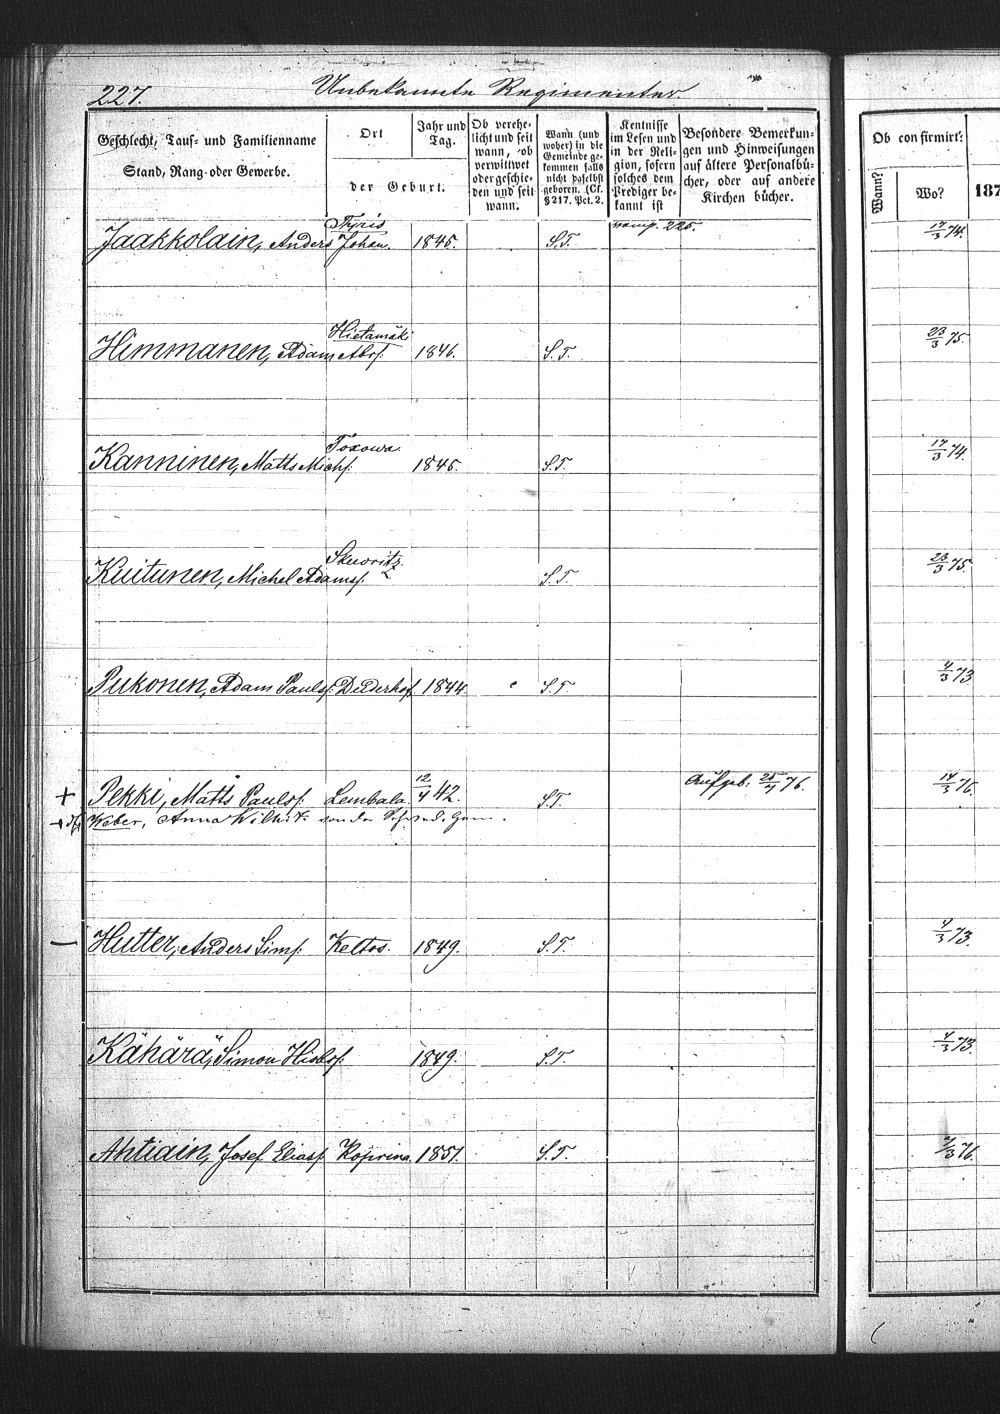 227. Unbekannte Regimenter
Geschlecht, Tauf- und Familienname
Stand, Rang- oder Gewerbe.
Ort
der Geburt.
Jahr und
Tag.
Ob verehe-
licht und seit
wann, ob
verwittwet
oder geschie-
den und seit
wann.
Wann (und
woher) in die
Gemeinde ge-
kommen falls
nicht daselbst
geboren. (Cf.
§ 217. Pct. 2.
Kentnisse
im Lesen und
in der Reli-
gion, sofern
solches dem
Prediger be-
kannt ist
Besondere Bemerkun-
gen und Hinweisungen
auf ältere Personalbü-
cher, oder auf andere
Kirchen bücher.
Ob confirmirt:
Wann?
Wo?
187
Jaakkolain, Anders Johan. 1845. S.T. 225. 17/3 74.
Hietamäki
Himmanen, Adam Abrs. 1846. S.T. 23/3 75.
Toxowa
Kanninen, Matts Michs. 1845. S.T. 17/3 74.
Skworitz
Kuitunen, Michel Adams. S.T. 23/3 75.
Pukonen, Adam Paulss. Duderhof 1844 S.T. 4/3 73
+ Pekki, Matts Paulss. Lembala. 12/4 42. S.T. Aufgeb. 25/4 76. 14/3 76.
Weber, Anna Wilh. von der Gem.
— Hutter, Anders Sims. Keltos. 1849. S.T. 4/3 73.
Kähärä, Simon 1849. S.T. 4/3 73.
Ahtiain, Josef Eliass. Koprina 1851. S.T. 7/3 76.